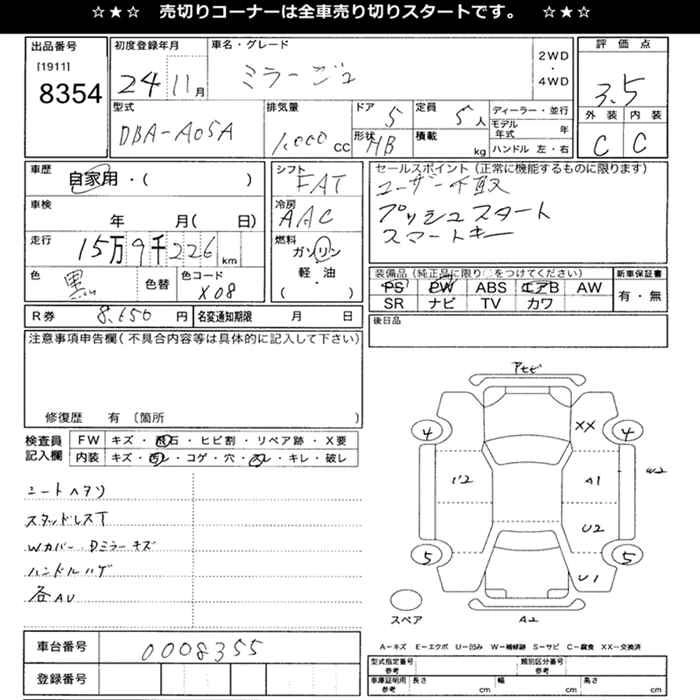 ☆★☆ 売切りコーナーは全車売り切りスタートです。 ☆★☆
出品番号
[1911]
8354
初度登録年月
24 11月
車名・グレード
ミラージュ
2WD
・
4WD
評価点
3.5
外装 内装
C C
型式
DBA-A05A
排気量
1,000 CC
ドア 5
形状 HB
定員 5人
積載 kg
ディーラー・並行
モデル年式 年
ハンドル 左・右
車歴
自家用・( )
車検
年 月( 日)
走行
15万9千226km
色 黒
色替
色コード
X08
シフト
FAT
冷房
AAC
燃料
ガソリン
軽・油
( )
セールスポイント(正常に機能するものに限ります)
ユーザー下取
プッシュスタート
スマートキー
装備品(純正品に限り○をつけてください)
PS PW ABS エアB AW
SR ナビ TV カワ
新車保証書
有・無
R券 8,650円
名変通知期限 月 日
後日品
注意事項申告欄(不具合内容等は具体的に記入して下さい)
修復歴 有 (箇所 )
検査員
記入欄
FW キズ・飛石・ヒビ割・リペア跡・X要
内装 キズ・汚レ・コゲ・穴・スレ・キレ・破レ
シートヘタリ
スタッドレスT
Wカバー・Dミラーキズ
ハンドルハゲ
各AU
アセビ
XX
4 4
A1
W2
U2
5 5
U1
A2
スペア
A-キズ E-エクボ U-凹み W-補修跡 S-サビ C-腐食 XX-交換済
車台番号
0008355
登録番号
型式指定番号
参考
類別区分番号
参考
車庫証明用
参考
長さ cm
幅 cm
高さ cm